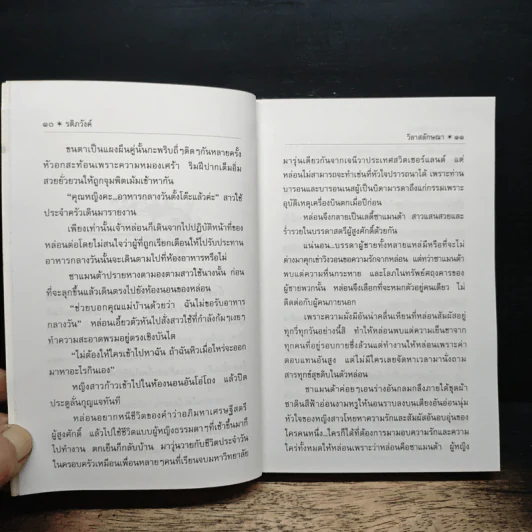 ๑๐ * รติภวังค์
ขนตาเป็นแผงผืนคู่นั้นกะพริบถี่ๆติดๆกันหลายครั้ง
หัวอกสะท้อนเพราะความหมองเศร้า ริมฝีปากเต็มอิ่ม
สวยยั่วยวนให้ถูกจุมพิตเม้มเข้าหากัน
“คุณหญิงคะ...อาหารกลางวันตั้งโต๊ะแล้วค่ะ” สาวใช้
ประจำครัวเดินมารายงาน
เพียงเท่านั้นเจ้าหล่อนก็เดินจากไปปฏิบัติหน้าที่ของ
หล่อนต่อโดยไม่สนใจว่าผู้ที่ถูกเรียกเตือนให้ไปรับประทาน
อาหารกลางวันนั้นจะเดินตามไปที่ห้องอาหารหรือไม่
ชาแมนต้าปรายหางตามองตามสาวใช้นางนั้น ก่อน
ที่จะลุกขึ้นแล้วเดินตรงไปยังห้องนอนของหล่อน
“ช่วยบอกคุณแม่บ้านด้วยว่า ฉันไม่ขอรับอาหาร
กลางวัน” หล่อนเอี้ยวตัวหันไปสั่งสาวใช้ที่กำลังก้มๆเงยๆ
ทำความสะอาดพรมอยู่ตรงเชิงบันได
“ไม่ต้องให้ใครเข้าไปหาฉัน ถ้าฉันหิวเมื่อไหร่จะออก
มาหาอะไรกินเอง”
หญิงสาวก้าวเข้าไปในห้องนอนอันโอ่โถง แล้วปิด
ประตูลั่นกุญแจทันที
หล่อนอยากหนีชีวิตของคำว่าอภิมหาเศรษฐีสตรี
ผู้สูงศักดิ์ แล้วไปใช้ชีวิตแบบผู้หญิงธรรมดาๆที่เช้าขึ้นมาก็
ไปทำงาน ตกเย็นก็กลับบ้าน มาวุ่นวายกับชีวิตประจำวัน
ในครอบครัวเหมือนเพื่อนหลายๆคนที่เรียนจบมหาวิทยาลัย
วิลาสลักษณา * ๑๑
มารุ่นเดียวกันจากเจนีวาประเทศสวิตเซอร์แลนด์ แต่
หล่อนไม่สามารถจะทำเช่นที่หัวใจปรารถนาได้ เพราะท่าน
บารอนและบารอนเนสผู้เป็นบิดามารดาถึงแก่กรรมเพราะ
อุบัติเหตุเครื่องบินตกเมื่อปีก่อน
หล่อนจึงกลายเป็นเลดี้ชาแมนต้า สาวแสนสวยและ
ร่ำรวยในบรรดาสตรีผู้สูงศักดิ์ด้วยกัน
แน่นอน...บรรดาผู้ชายทั้งหลายแหล่มีหรือที่จะไม่
ต่างมาคุกเข่าวิงวอนขอความรักจากหล่อน แต่ทว่าชาแมนต้า
พบแต่ความหื่นกระหาย และโลภในทรัพย์ศฤงคารของ
ผู้ชายพวกนั้น หล่อนจึงเลือกที่จะหมกตัวอยู่คนเดียว ไม่
ติดต่อกับผู้คนภายนอก
เพราะความมั่งมีอันน่าคลื่นเหียนที่หล่อนสัมผัสอยู่
ทุกวี่ทุกวันอย่างนี้สิ ทำให้หล่อนพบแต่ความเย็นชาจาก
ทุกคนที่อยู่รอบกายซึ่งล้วนแต่ทำงานให้หล่อนเพราะค่า
ตอบแทนอันสูง แต่ไม่มีใครเลยจัดหาเวลามานั่งถาม
สารทุกข์สุขดิบในตัวหล่อน
ชาแมนต้าค่อยๆเอนร่างอันกลมกลึงภายใต้ชุดผ้า
ซาตินสีฟ้าอ่อนงามหรูให้นอนราบลงบนเตียงอันอ่อนนุ่ม
หัวใจของหญิงสาวโหยหาความรักและสัมผัสอันอบอุ่นของ
ใครคนหนึ่ง...ใครก็ได้ที่ต้องการมามอบความรักและความ
ใคร่ทั้งหมดให้หล่อนเพราะว่าหล่อนคือชาแมนต้า ผู้หญิง